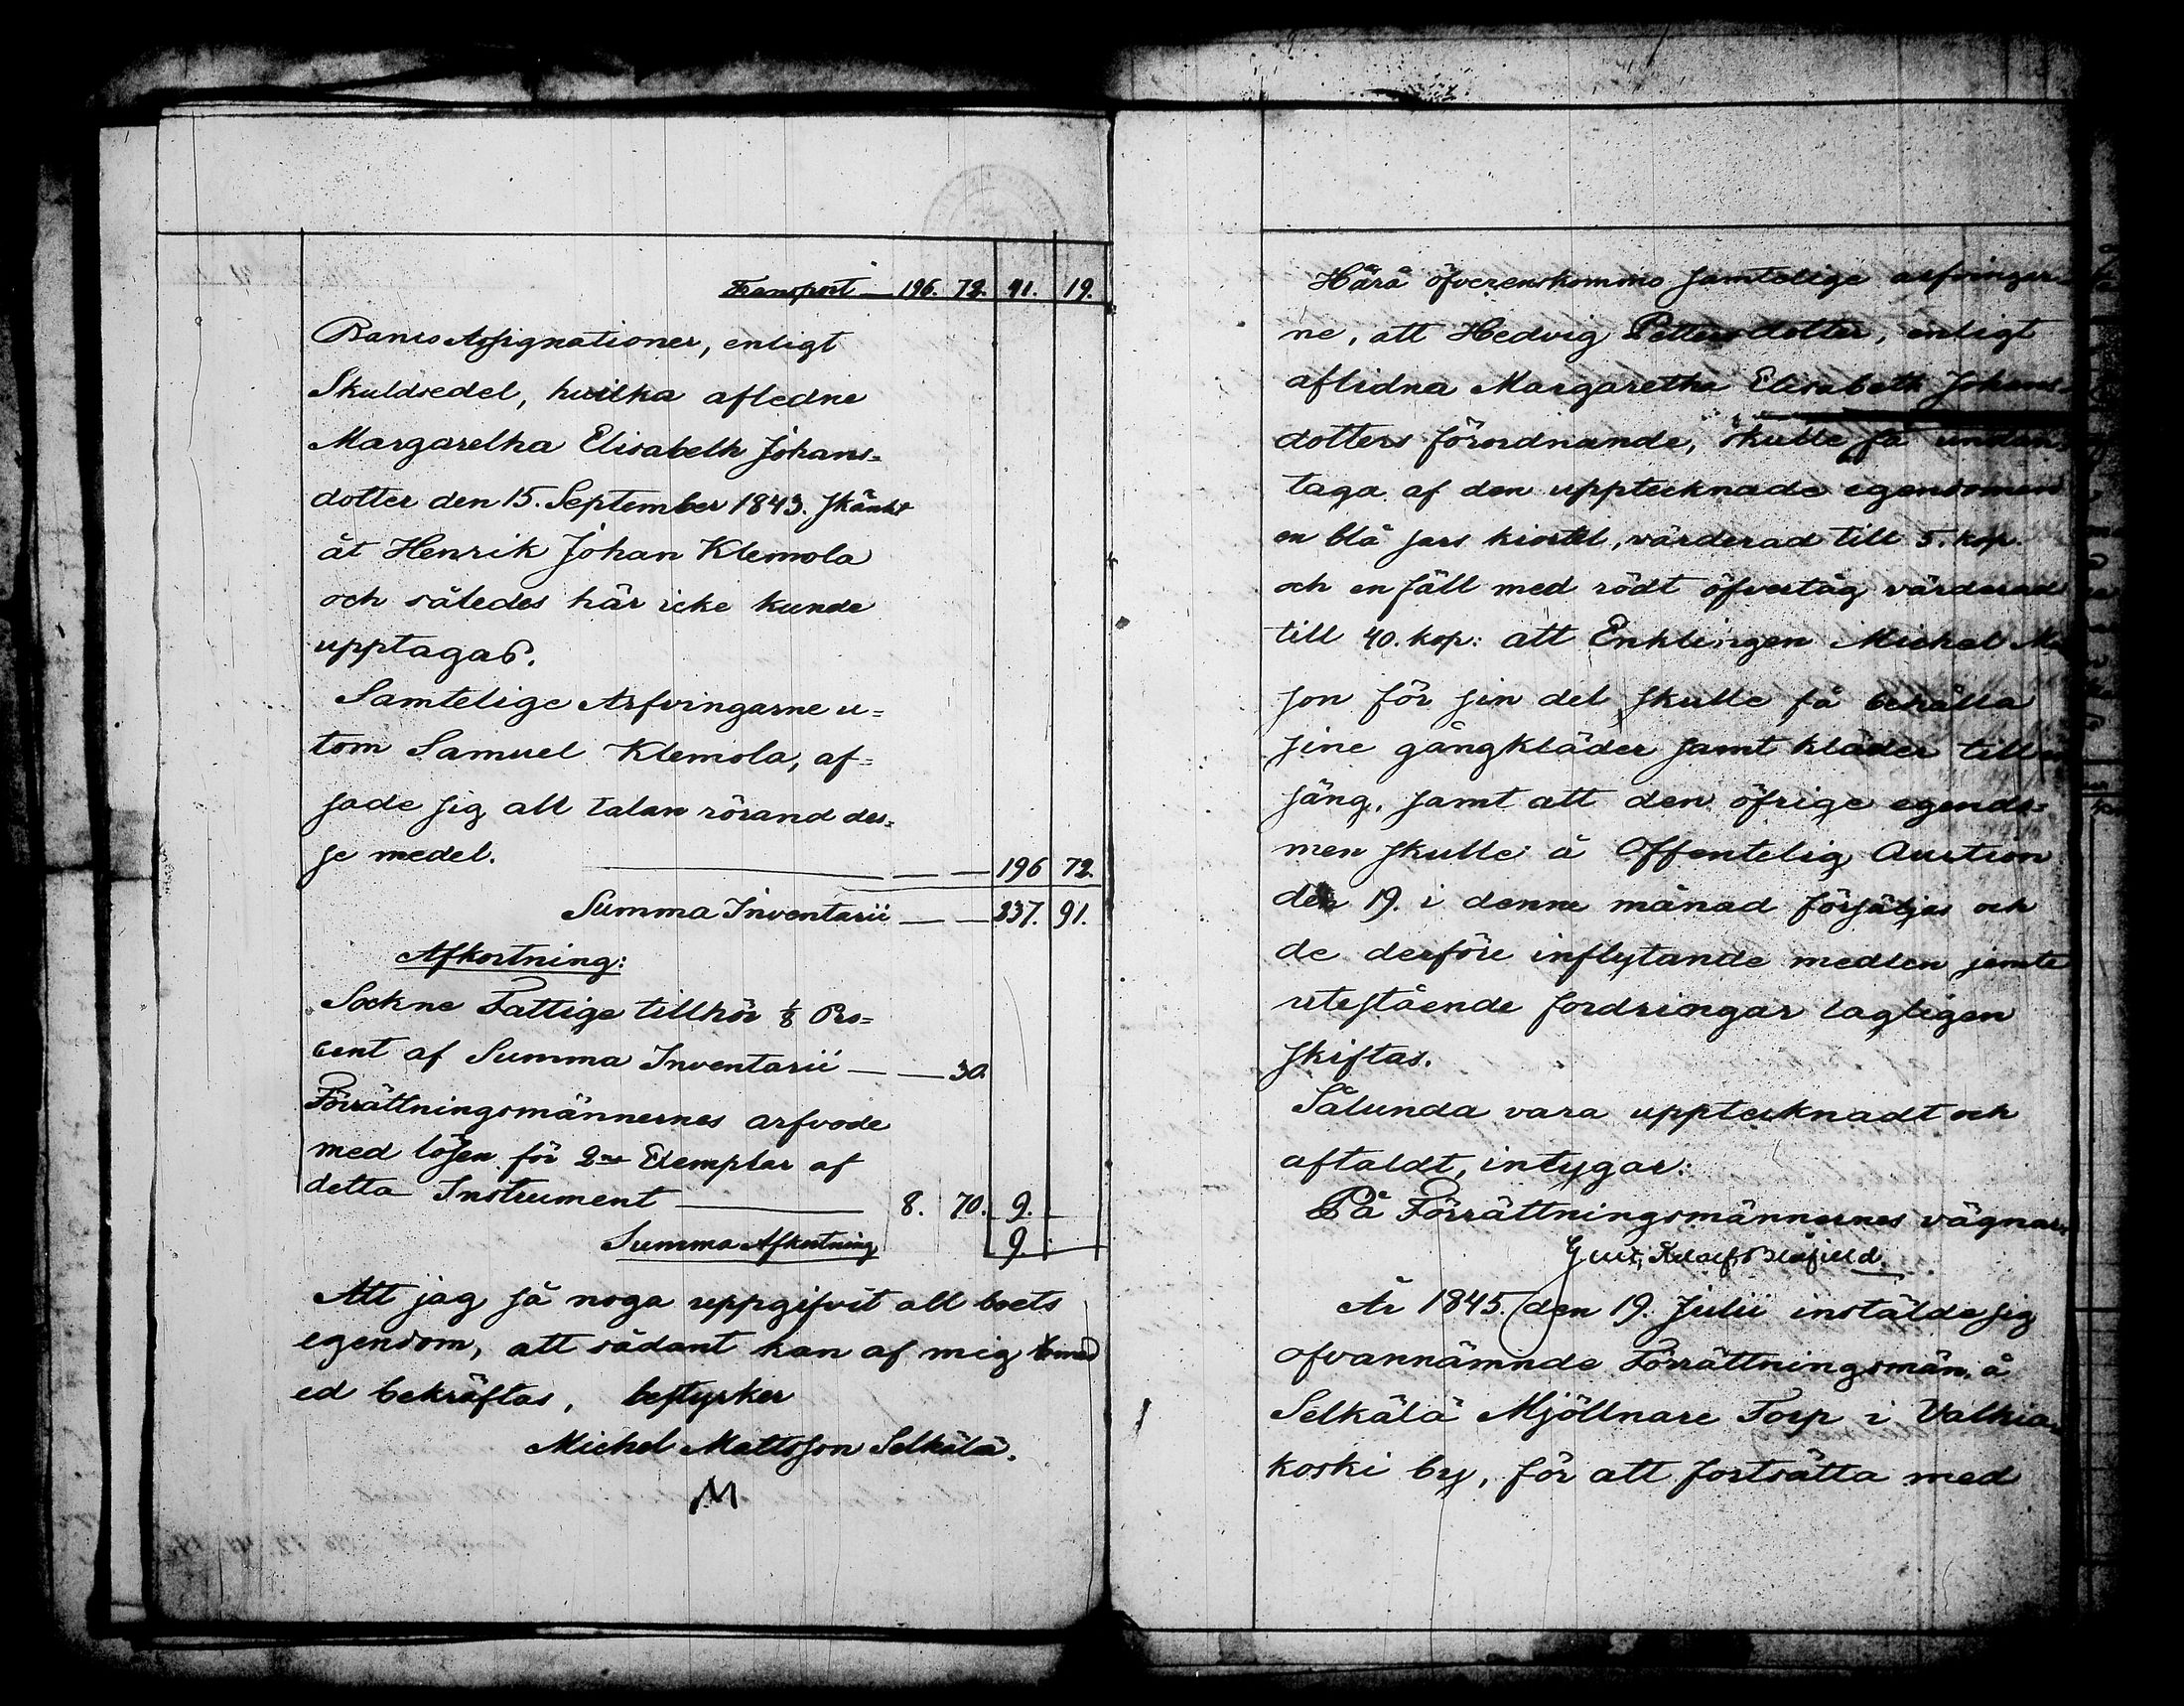 Transport — 196. 72. 41. 19.
Banco Assignationer, enligt
Skuldsedel, hvilka afledne
Margaretha Elisabeth Johans=
dotter den 15. September 1843. skänkt
åt Henrik Johan Klemola
och således här icke kunde
upptagas.
Samtelige Arfvingarne u=
tom Samuel Klemola, af=
sade sig all talan rörand des=
se medel. — — — 196 72.
Summa Inventarii — — 237. 91.
Afkortning:
Sockne Fattige tillhör 1/8 Pro=
cent af Summa Inventarii — — 30.
Förrättningsmännernes arfvode
med lösen för 2ne Exemplar af
detta Instrument — 8. 70. 9. —
Summa Afkortning 9. —
Att jag så noga uppgifvit all boets
egendom, att sådant kan af mig med
ed bekräftas, bestyrker
Michel Mattsson Selkälä.
M
Härå öfverenskommo samtelige arfvingar=
ne, att Hedvig Pettersdotter, enligt
aflidna Margaretha Elisabeth Johans=
dotters förordnande, skulle få undan=
taga af den upptecknade egendomen
en blå sars kiortel, värderad till 5. kop.
och en fäll med rödt öfvertåg värderad
till 40. kop: att Enklingen Michel
son för sin del skulle få behålla
sine gångkläder samt kläder till
säng, samt att den öfrige egendo=
men skulle å Offentelig Auction
den 19. i denne månad försäljas och
de derföre inflytande medlen jemte
utestående fordringar lagligen
skiftas.
Sålunda vara upptecknadt och
aftaldt, intygar:
På Förrättningsmännernes vägnar,
Gust. Adolf Blåfield.
År 1845. den 19. Julii instälde sig
ofvannämnde Förrättningsmän, å
Selkälä Mjöllnare Torp i Valkia=
koski by, för att fortsätta med